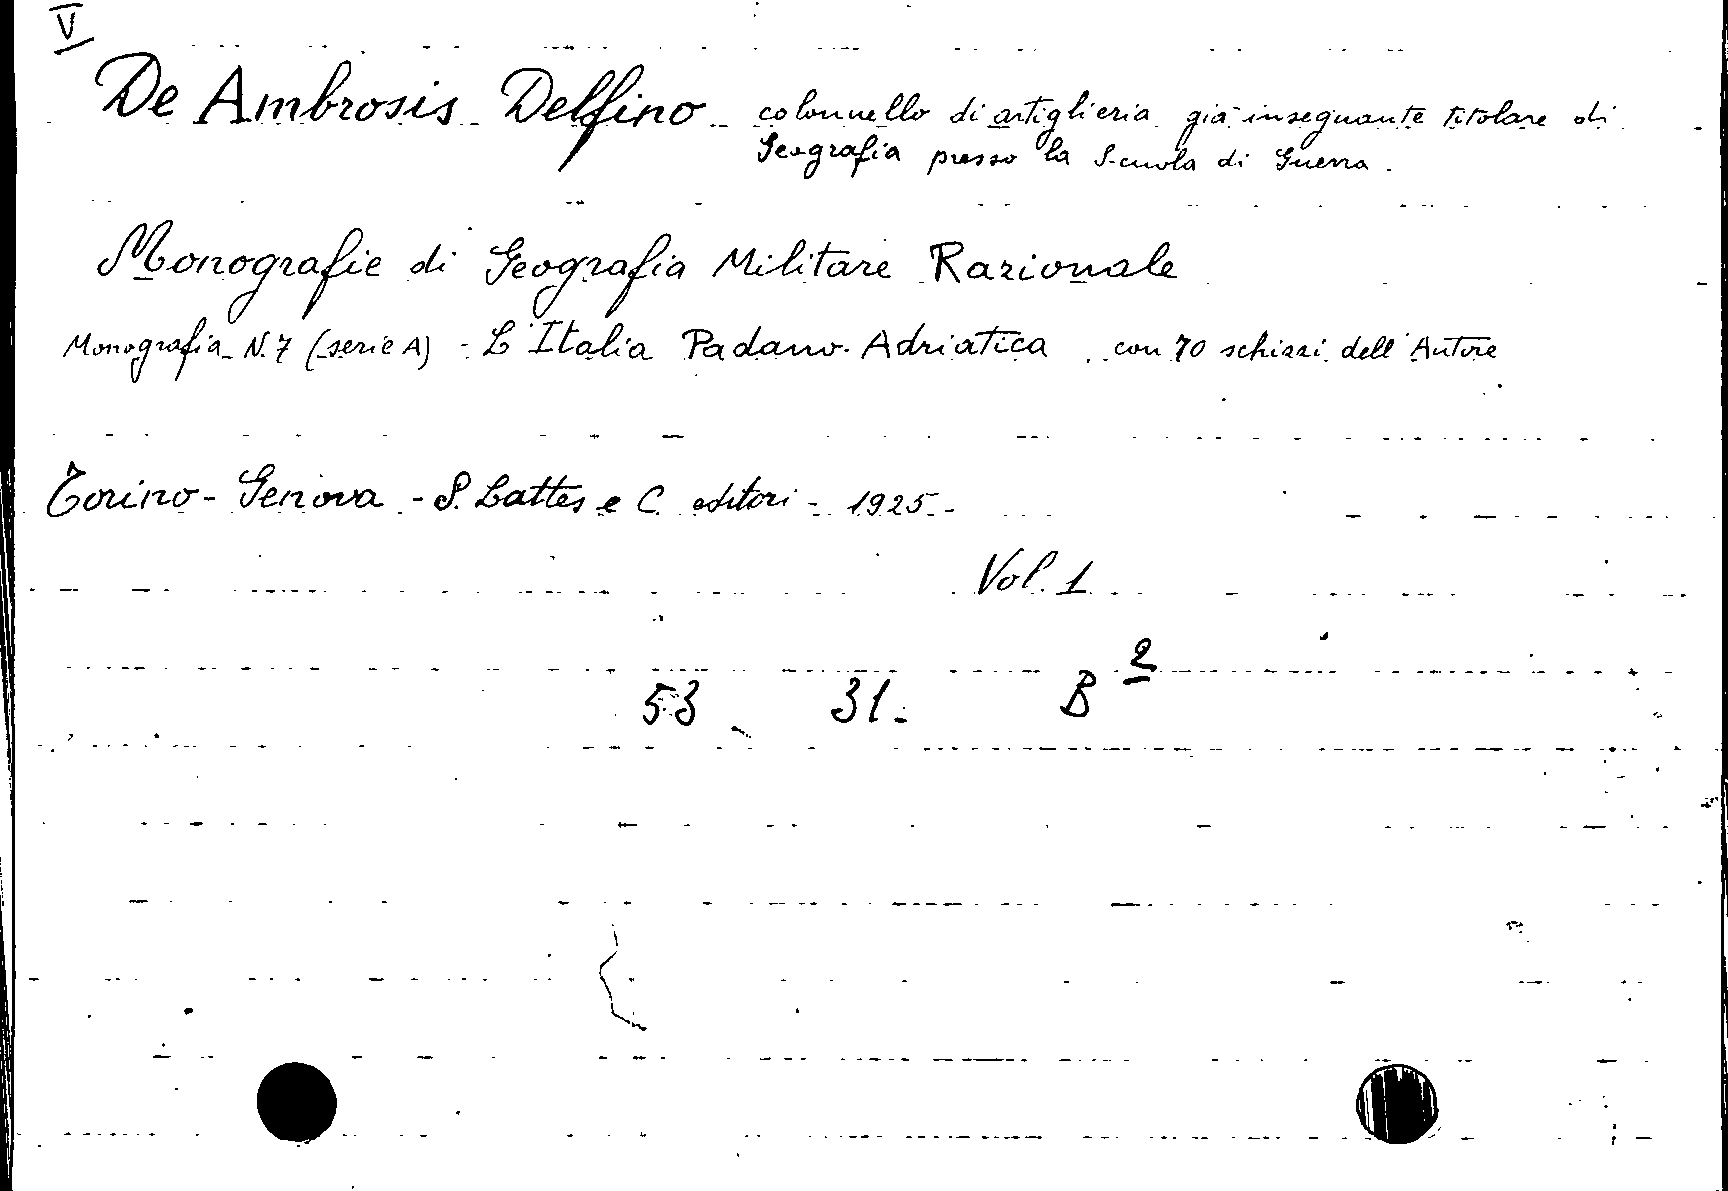 V
De Ambrosis Delfino colonnello di artiglieria già insegnante titolare di
Geografia presso la Scuola di Guerra.
Monografie di Geografia Militare Razionale
Monografia N. 7 (serie A) - L'Italia Padano-Adriatica con 70 schizzi dell'Autore
Torino - Genova - S. Lattes e C. editori - 1925 -
Vol. 1
53 31. B 2